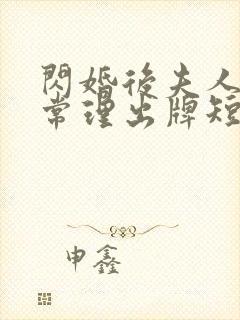 閃婚後夫人
常理出牌短
申鑫